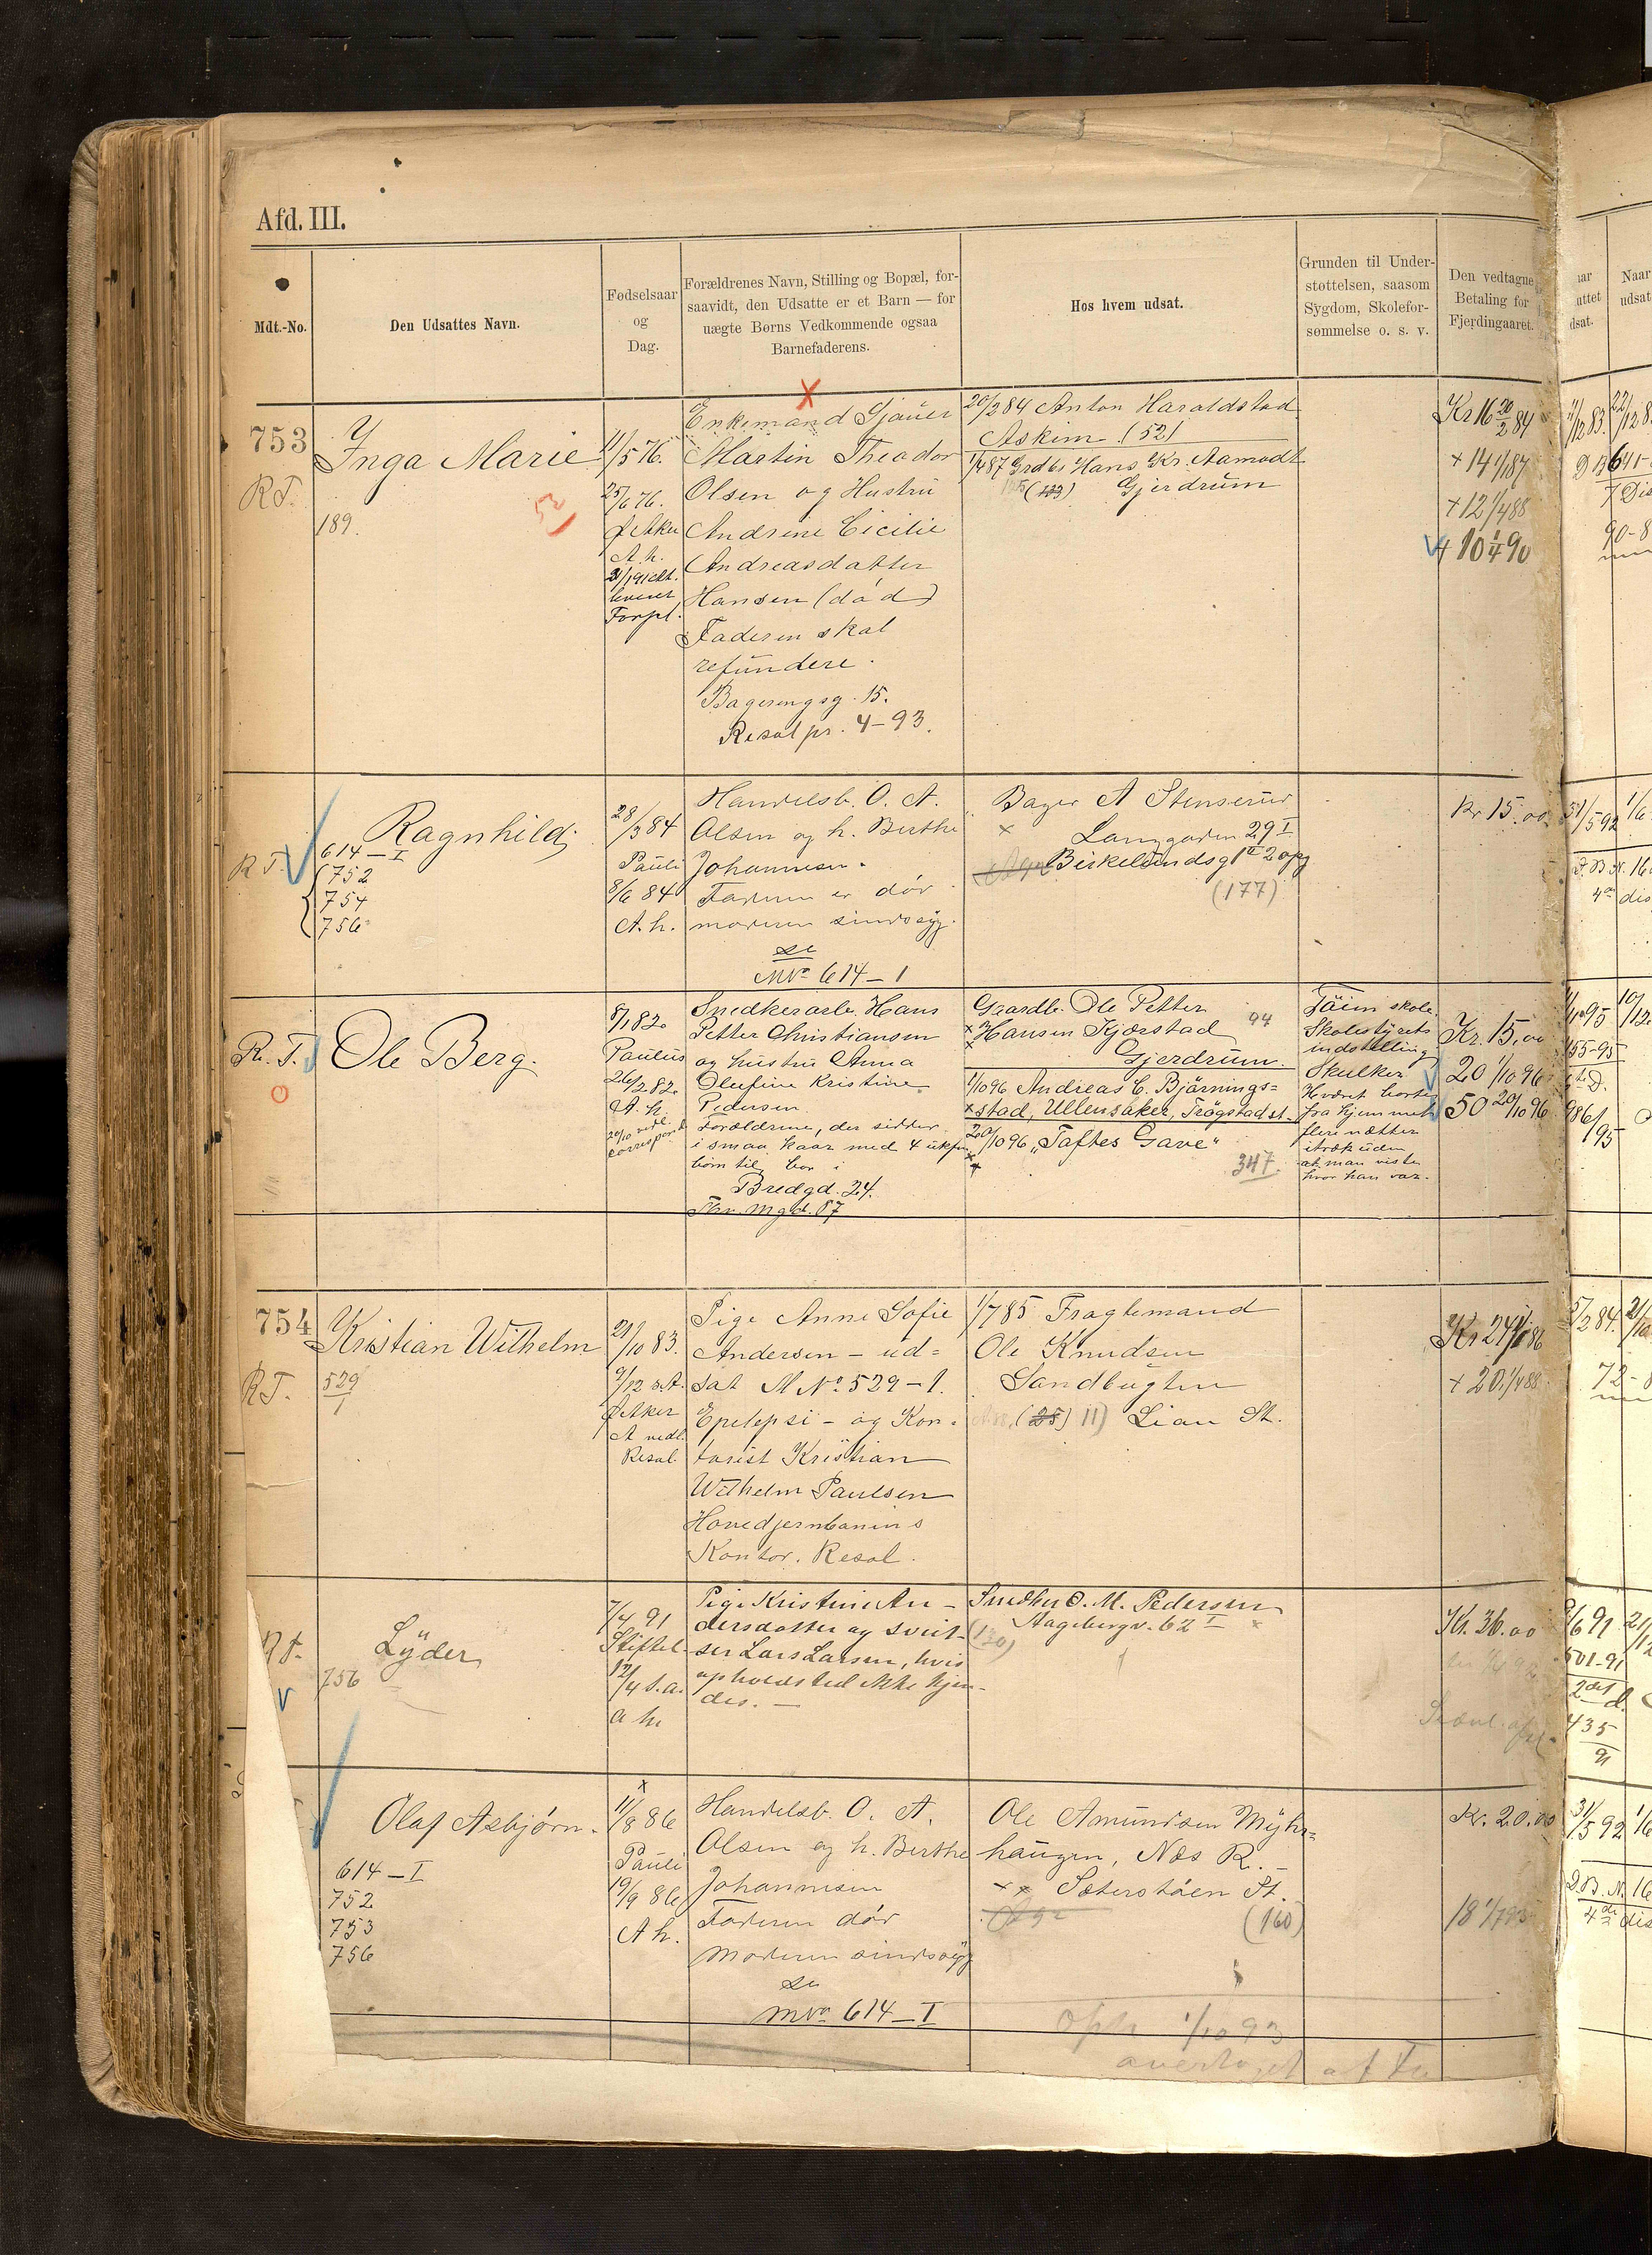 Afd. III.
Mdt.-No.
Den Udsattes Navn.
Fødselsaar
og
Dag.
Forældrenes Navn, Stilling og Bopæl, for-
saavidt, den Udsatte er et Barn — for
uægte Børns Vedkommende ogsaa
Barnefaderens.
Hos hvem udsat.
Grunden til Under-
støttelsen, saasom
Sygdom, Skolefor-
sømmelse o. s. v.
Den vedtagne
Betaling for
Fjerdingaaret.
753
R T.
Inga Marie
189.
52
11/5 76.
25/6 76.
Ø Aker
A. h.
Forpl.
Enkemand Gjauer
Martin Theador
Olsen og Hustru
Andrine Cicilie
Andreasdatter
Hansen (död)
Faderen skal
refundere.
15.
Resol pr. 4-93.
20/2 84 Anton Haraldstad
Askim (52)
1/4 87 Grdbr Hans Kr. Aamodt
Gjerdrum
Kr 16 20/2 84
+ 14 1/4 87
+ 12 1/4 88
+ 10 1/4 90
R T.
Ragnhild
614—I
752
754
756
28/3 84
Pauli
8/6 84
A. h.
Handelsb. O. A.
Olsen og h. Berthe
Johannesen.
Faderen er död
moderen sindssyg.
se
MNo 614—1
Bager A Stenserud
Langgaden 29 I
Birkelundsg 1 II 2 opg
(177)
Kr. 15.00
R. T.
Ole Berg.
8/1 82.
Paulus
26/2 82.
A. h.
Snedkerarb. Hans
Petter Christiansen
og hustru Anna
Olufine Kristine
Pedersen.
Forældrene, der sidder
i smaa kaar med 4 ukfm.
börn til, bor i
Bredgd. 24.
Gaardbr. Ole Petter
Hansen Kjærstad 94
Gjerdrum.
1/10 96 Andreas C. Bjärnings=
stad, Ullensaker, Trögstad st.
20/10 96 „Toftes Gave"
347.
Töien skole.
Skolestyrets
indstilling
Skulker
Hværet borte
fra hjemmet
flere nætter
itræk uden
at man viste
hvor han var.
Kr. 15.00
20 1/10 96
50 20/10 96
754
R T.
Kristian Wilhelm
529
1
21/10 83.
9/12 s.A.
Ø Aker
A. vedl.
Resol.
Pige Anne Sofie
Andersen — ud=
sat M No 529—1.
Epilepsi — og Kon=
torist Kristian
Wilhelm Paulsen
Hovedjernbanens
Kontor. Resol.
1/7 85 Fragtemand
Ole Knudsen
Sandbugten
(25) 11) Lian St.
Kr 24 1/1 86
+ 20 1/4 88
Lyder
756
7/4 91
Stiftel.
12/4 s.a.
a h.
Pige Kristine An-
dersdatter og Sveit-
ser Lars Larsen, hvis
opholdssted ikke kjen-
des. —
Snedker O. M. Pedersen
Aagebergv. 62 I
(130)
Kr. 36.00
Olaf Asbjørn.
614—I
752
753
756
11/8 86
Pauli
19/9 86
A h.
Handelsb. O. A.
Olsen og h. Berthe
Johannesen
Faderen död
Moderen sindssyg
se
MNo 614—I
Ole Amundsen Myhr=
haugen, Næs R. —
Sæterstöen St.
(160)
Oph 1/10 93
overtaget af
Kr. 20.00
18 1/7 93